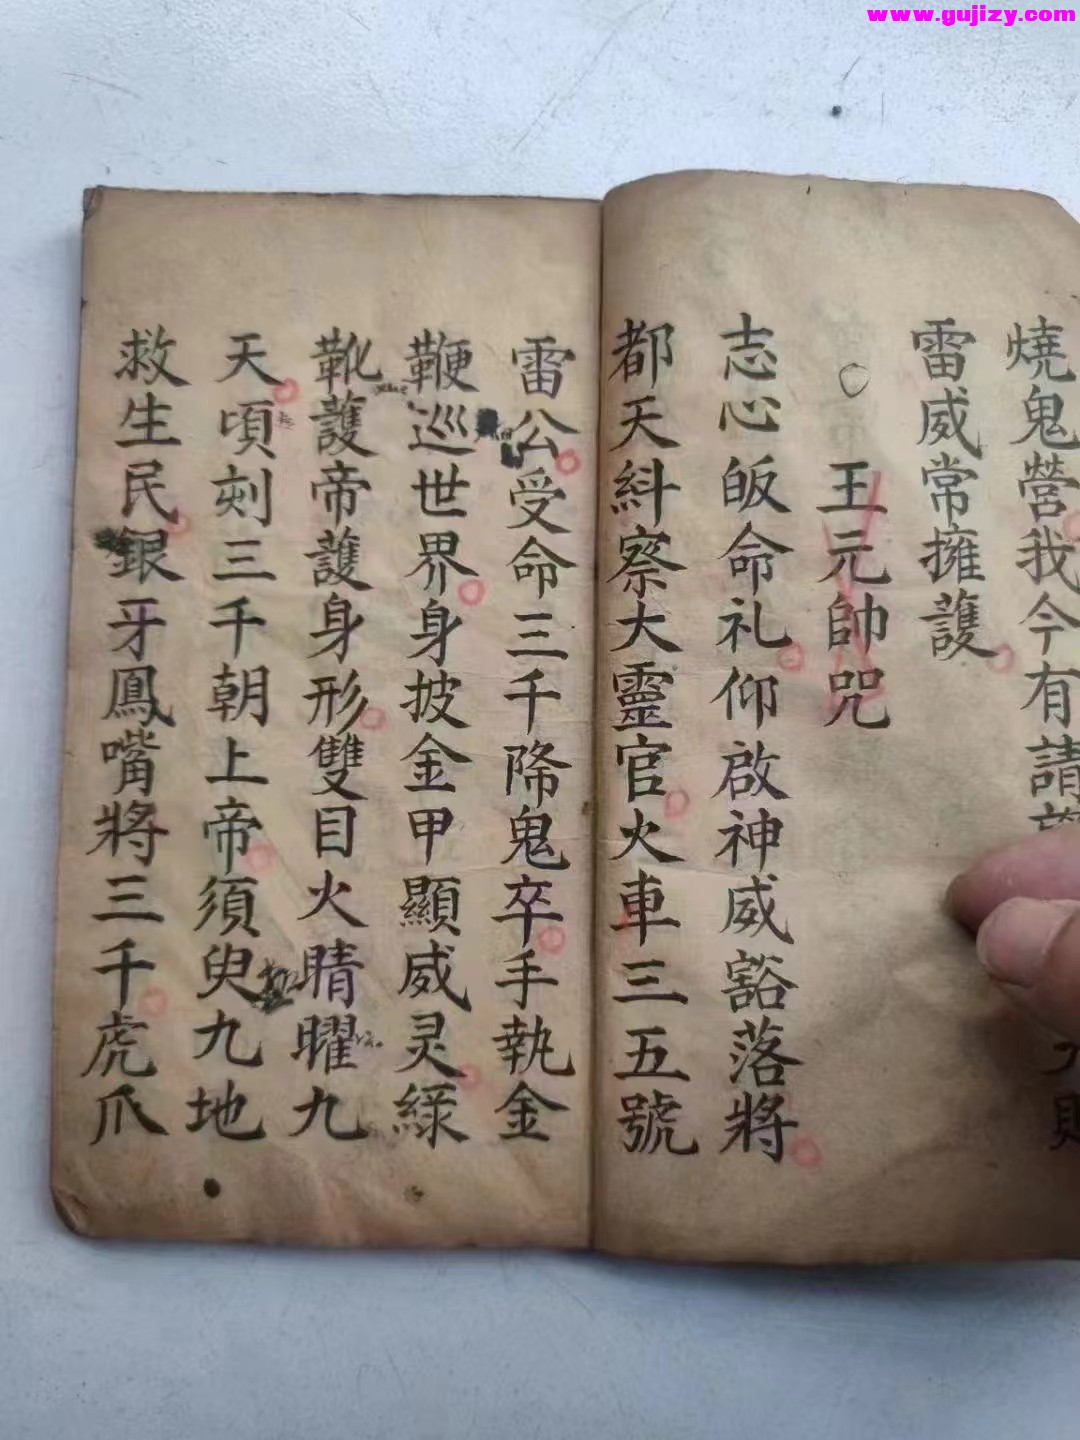 www.gujizy.com
燒鬼營我今有請
雷威常擁護
王元帥咒
志心皈命礼仰啟神威豁落將
都天糾察大靈官火車三五號
雷公受命三千降鬼卒手執金
鞭巡世界身披金甲顯威灵綠
靴護帝護身形雙目火睛曜九
天頃刻三千朝上帝須臾九地
救生民銀牙鳳嘴將三千虎爪